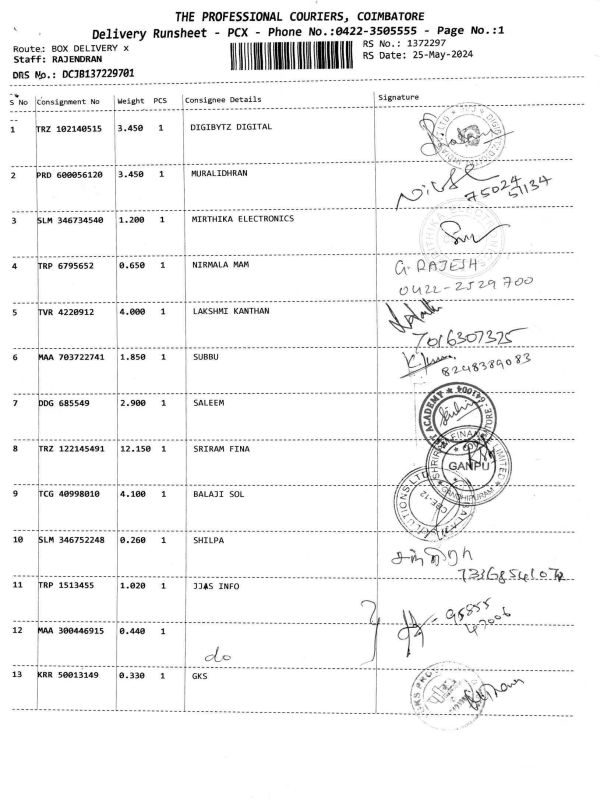 THE PROFESSIONAL COURIERS, COIMBATORE
Delivery Runsheet - PCX - Phone No.:0422-3505555 - Page No.:1
Route: BOX DELIVERY x RS No.: 1372297
Staff: RAJENDRAN RS Date: 25-May-2024
DRS No.: DCJB137229701
S No Consignment No Weight PCS Consignee Details Signature
1 TRZ 102140515 3.450 1 DIGIBYTZ DIGITAL
2 PRD 600056120 3.450 1 MURALIDHRAN
75024
51134
3 SLM 346734540 1.200 1 MIRTHIKA ELECTRONICS
4 TRP 6795652 0.650 1 NIRMALA MAM G. RAJESH
0422-2529700
5 TVR 4220912 4.000 1 LAKSHMI KANTHAN
7016307325
6 MAA 703722741 1.850 1 SUBBU
8248389083
7 DDG 685549 2.900 1 SALEEM
ACADEMY * 641004
8 TRZ 122145491 12.150 1 SRIRAM FINA
SHRIRAM FINANCE LIMITED
GANPU
GANDHIPURAM
9 TCG 40998010 4.100 1 BALAJI SOL
SOLUTIONS LTD
CBE-12
10 SLM 346752248 0.260 1 SHILPA
11 TRP 1513455 1.020 1 JJAS INFO
95855
47006
12 MAA 300446915 0.440 1
do
13 KRR 50013149 0.330 1 GKS